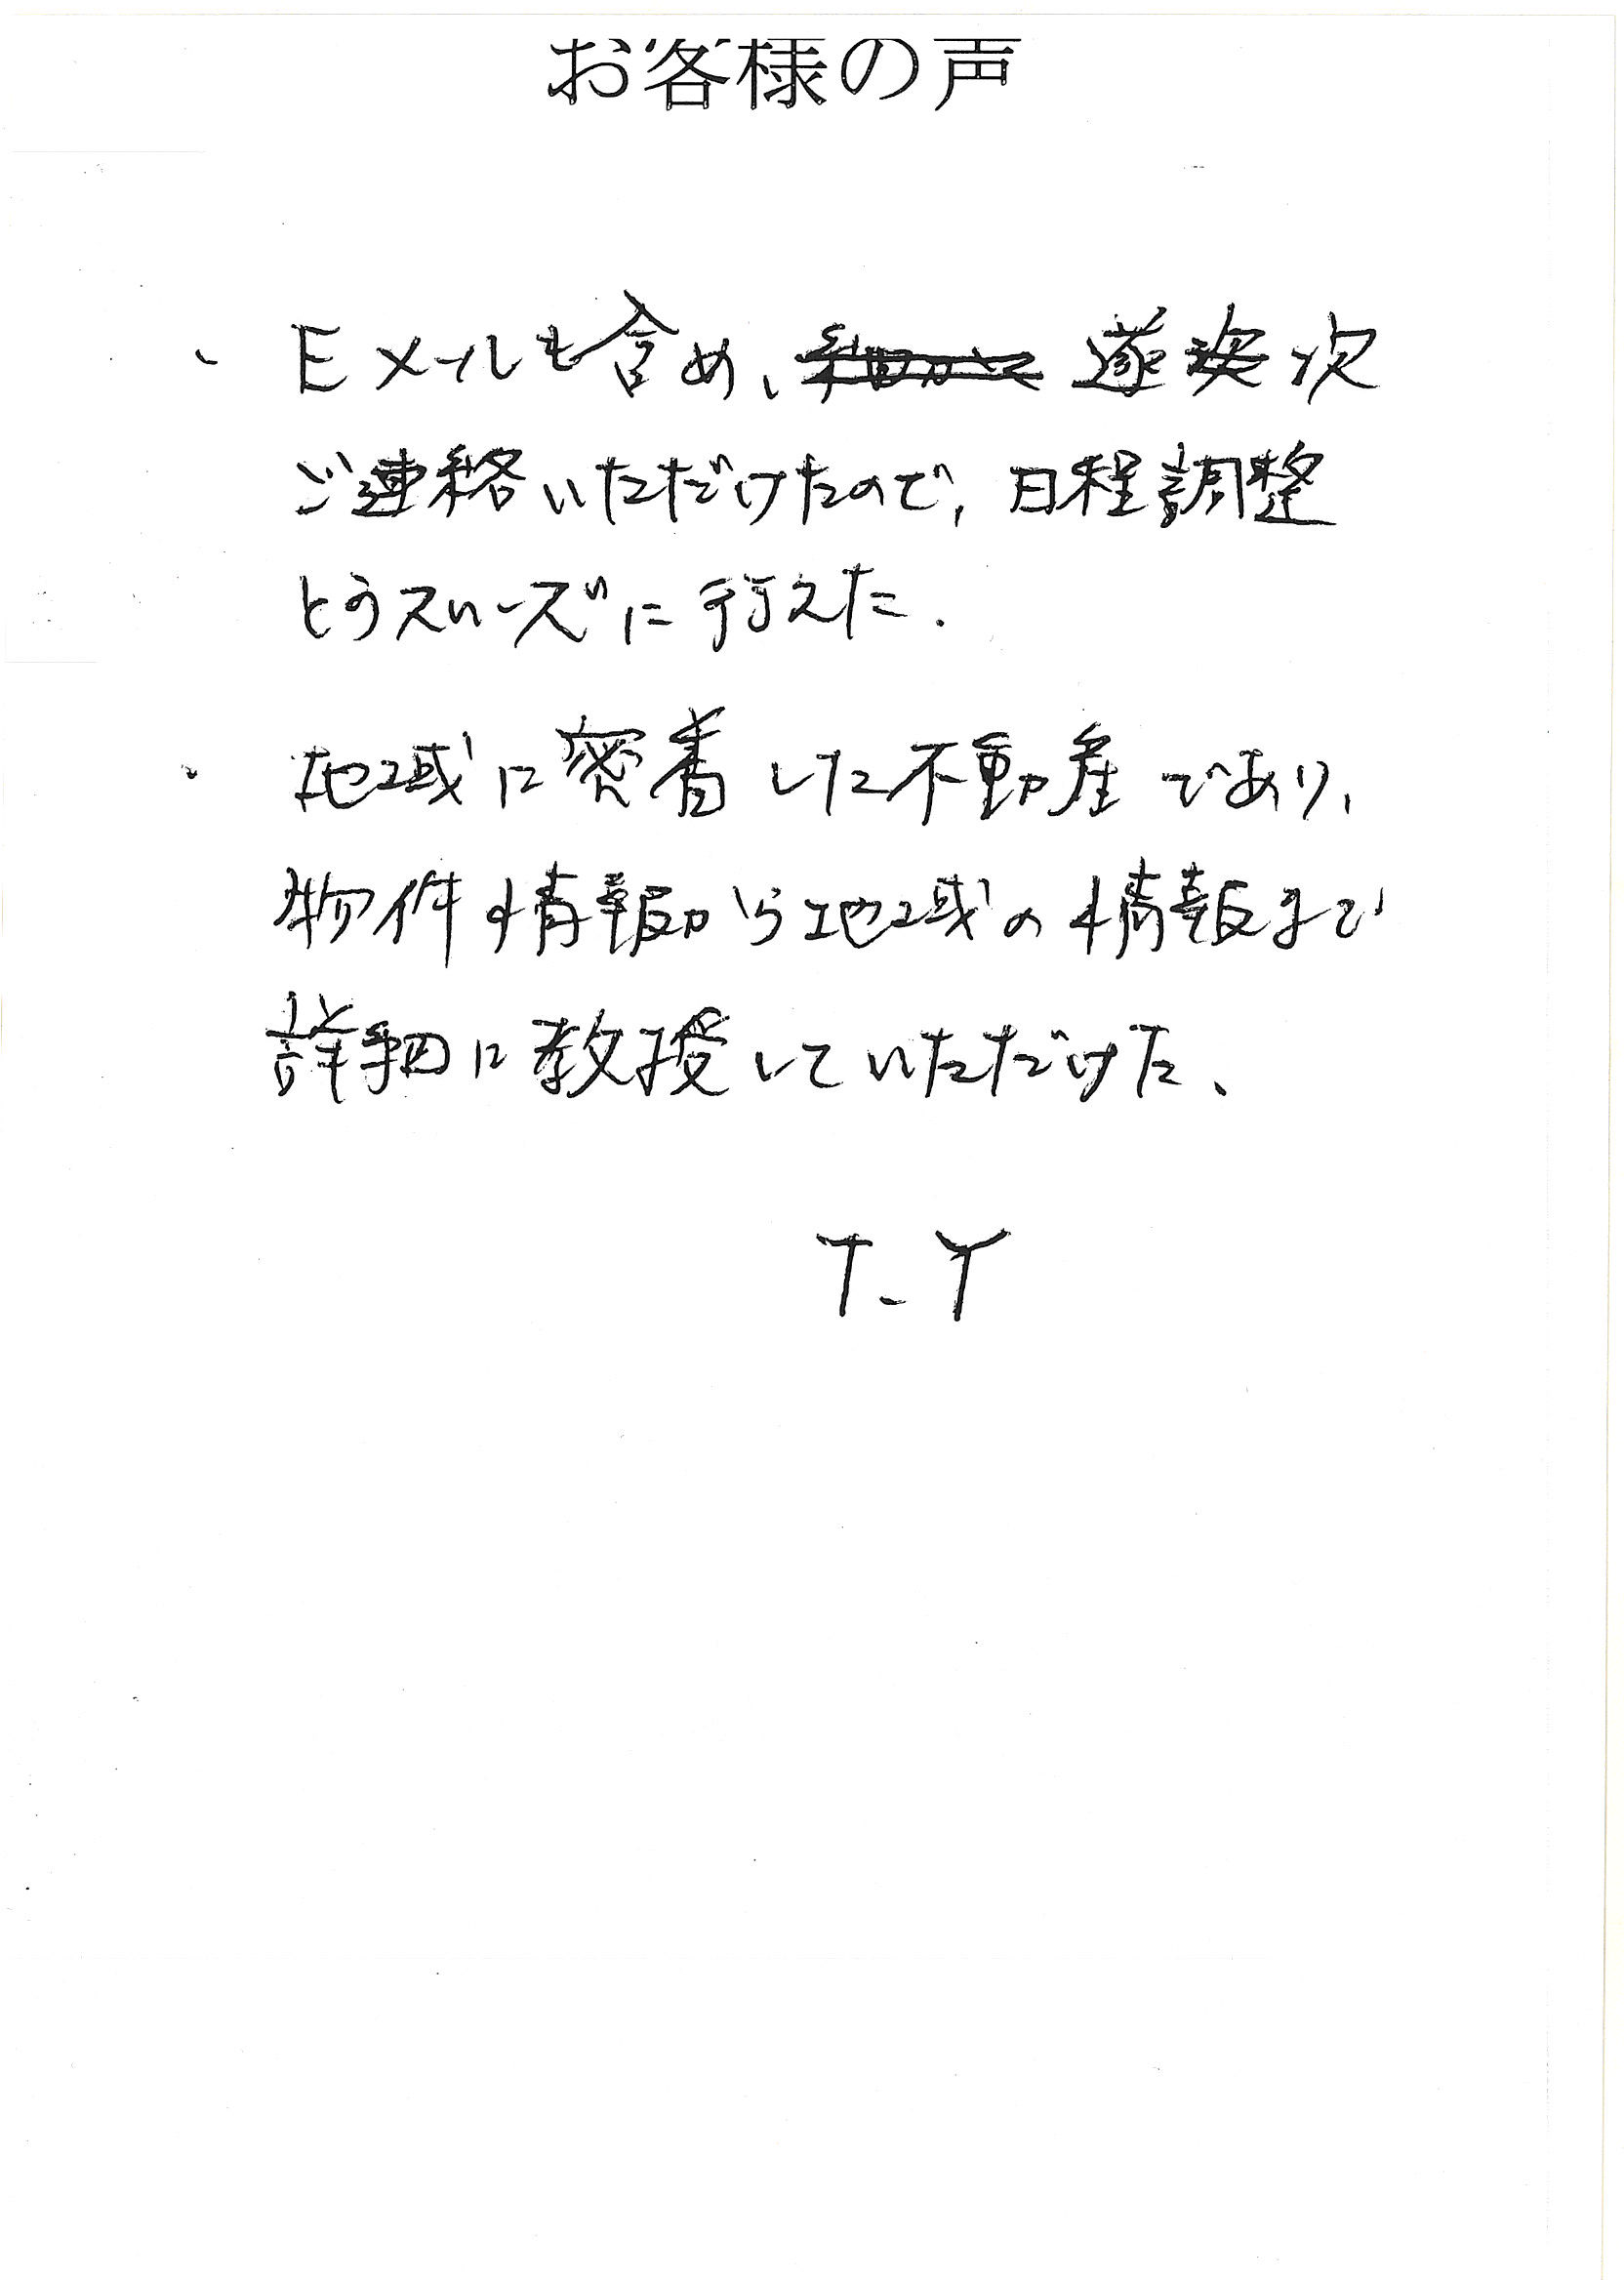 お客様の声
・ Eメールも含め、遂次
ご連絡いただけたので、日程調整
とうスムーズに行えた.
・ 地域に密着した不動産であり、
物件情報から地域の情報まで
詳細に教授していただけた、
T.Y